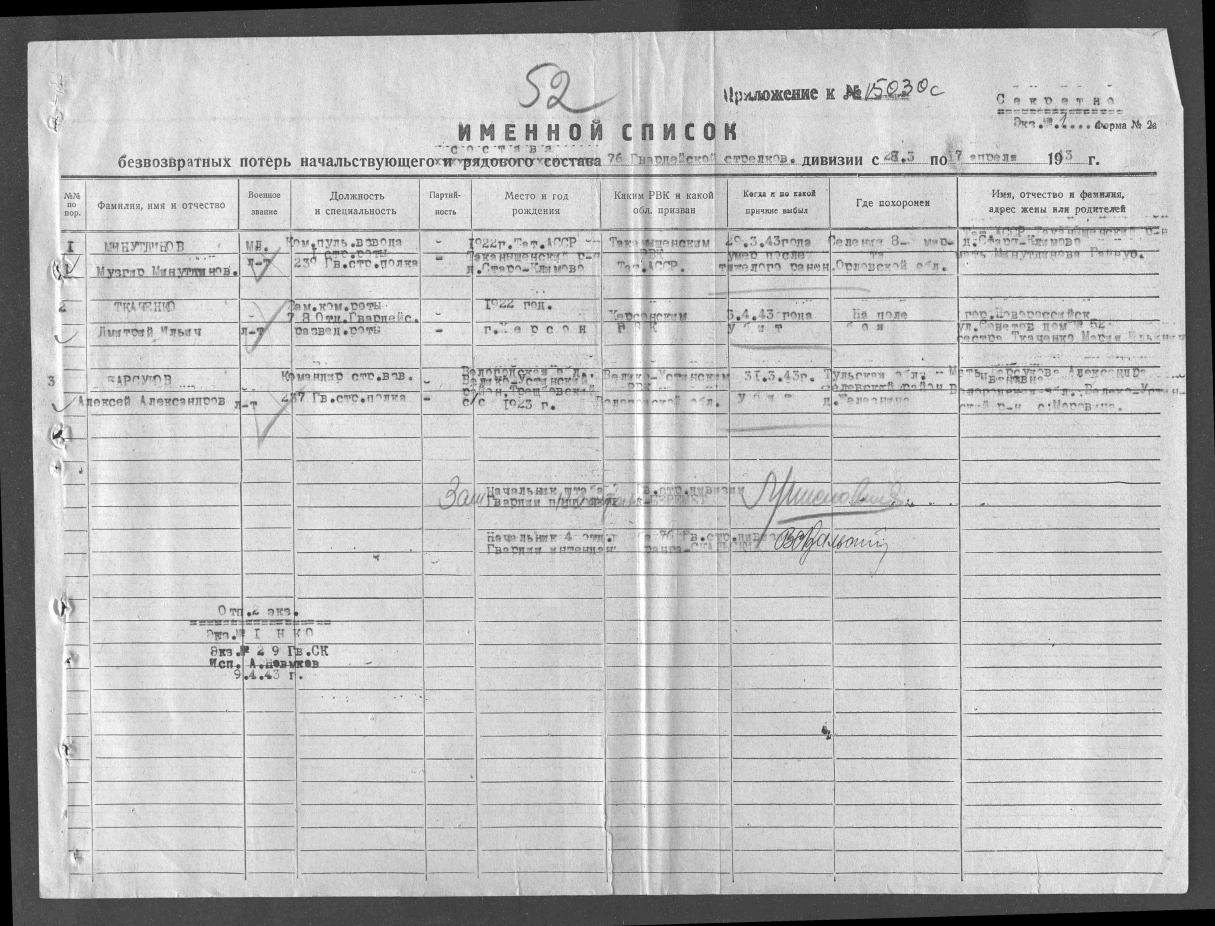 52
Приложение к № 15030с
Секретно
Экз.№ 1 Форма № 2а
ИМЕННОЙ СПИСОК
состава
безвозвратных потерь начальствующего и рядового состава 76 Гвардейской стрелков. дивизии с 28.3 по 7 апреля 1943 г.
№№ по пор.
Фамилия, имя и отчество
Военное звание
Должность и специальность
Партийность
Место и год рождения
Каким РВК и какой обл. призван
Когда и по какой причине выбыл
Где похоронен
Имя, отчество и фамилия, адрес жены или родителей
1 МИНУТЛИНОВ мл. Ком.пуль.взвода - 1922г.Тат.АССР Таканышенским 29.3.43года Селение
стр.роты Таканышенский р-н РВК умер после
Музгир Минутлинов. л-т 239 Гв.стр.полка - д.Старо-Климово Тат.АССР. тяжелого ранен. Орловской обл. мать Минутлинова
2 ТКАЧЕНКО Зам.ком.роты 1922 год.
78 Отд.Гвардейс. Херсонским 3.4.43 года На поле гор.Новороссийск
Дмитрий Ильич л-т развед.роты - г.Херсон РВК убит боя ул.Советов дом № 52
сестра Ткаченко Мария Ильинич
3 БАРСУКОВ Командир стр.взв. - Вологодская обл. Велико-Устинским 31.3.43г. Тульская обл. Мать Барсукова Александра
Велико-Устинский РВК Белевский район Ивановна
Алексей Александров л-т 237 Гв.стр.полка - с/с 1923 г. Вологодской обл. убит д.Железница Вологодская обл., Велико-Устин-
ский р-н
Зам Начальник штаба 76 Гв.стр.дивизии
Гвардии
Начальник 4 отд. 76 Гв.стр.дивизии
Гвардии интендант ранга
Отп.2 экз.
Экз.№ 1 НКО
Экз.№ 2 9 Гв.СК
Исп. А.Новиков
9.4.43 г.